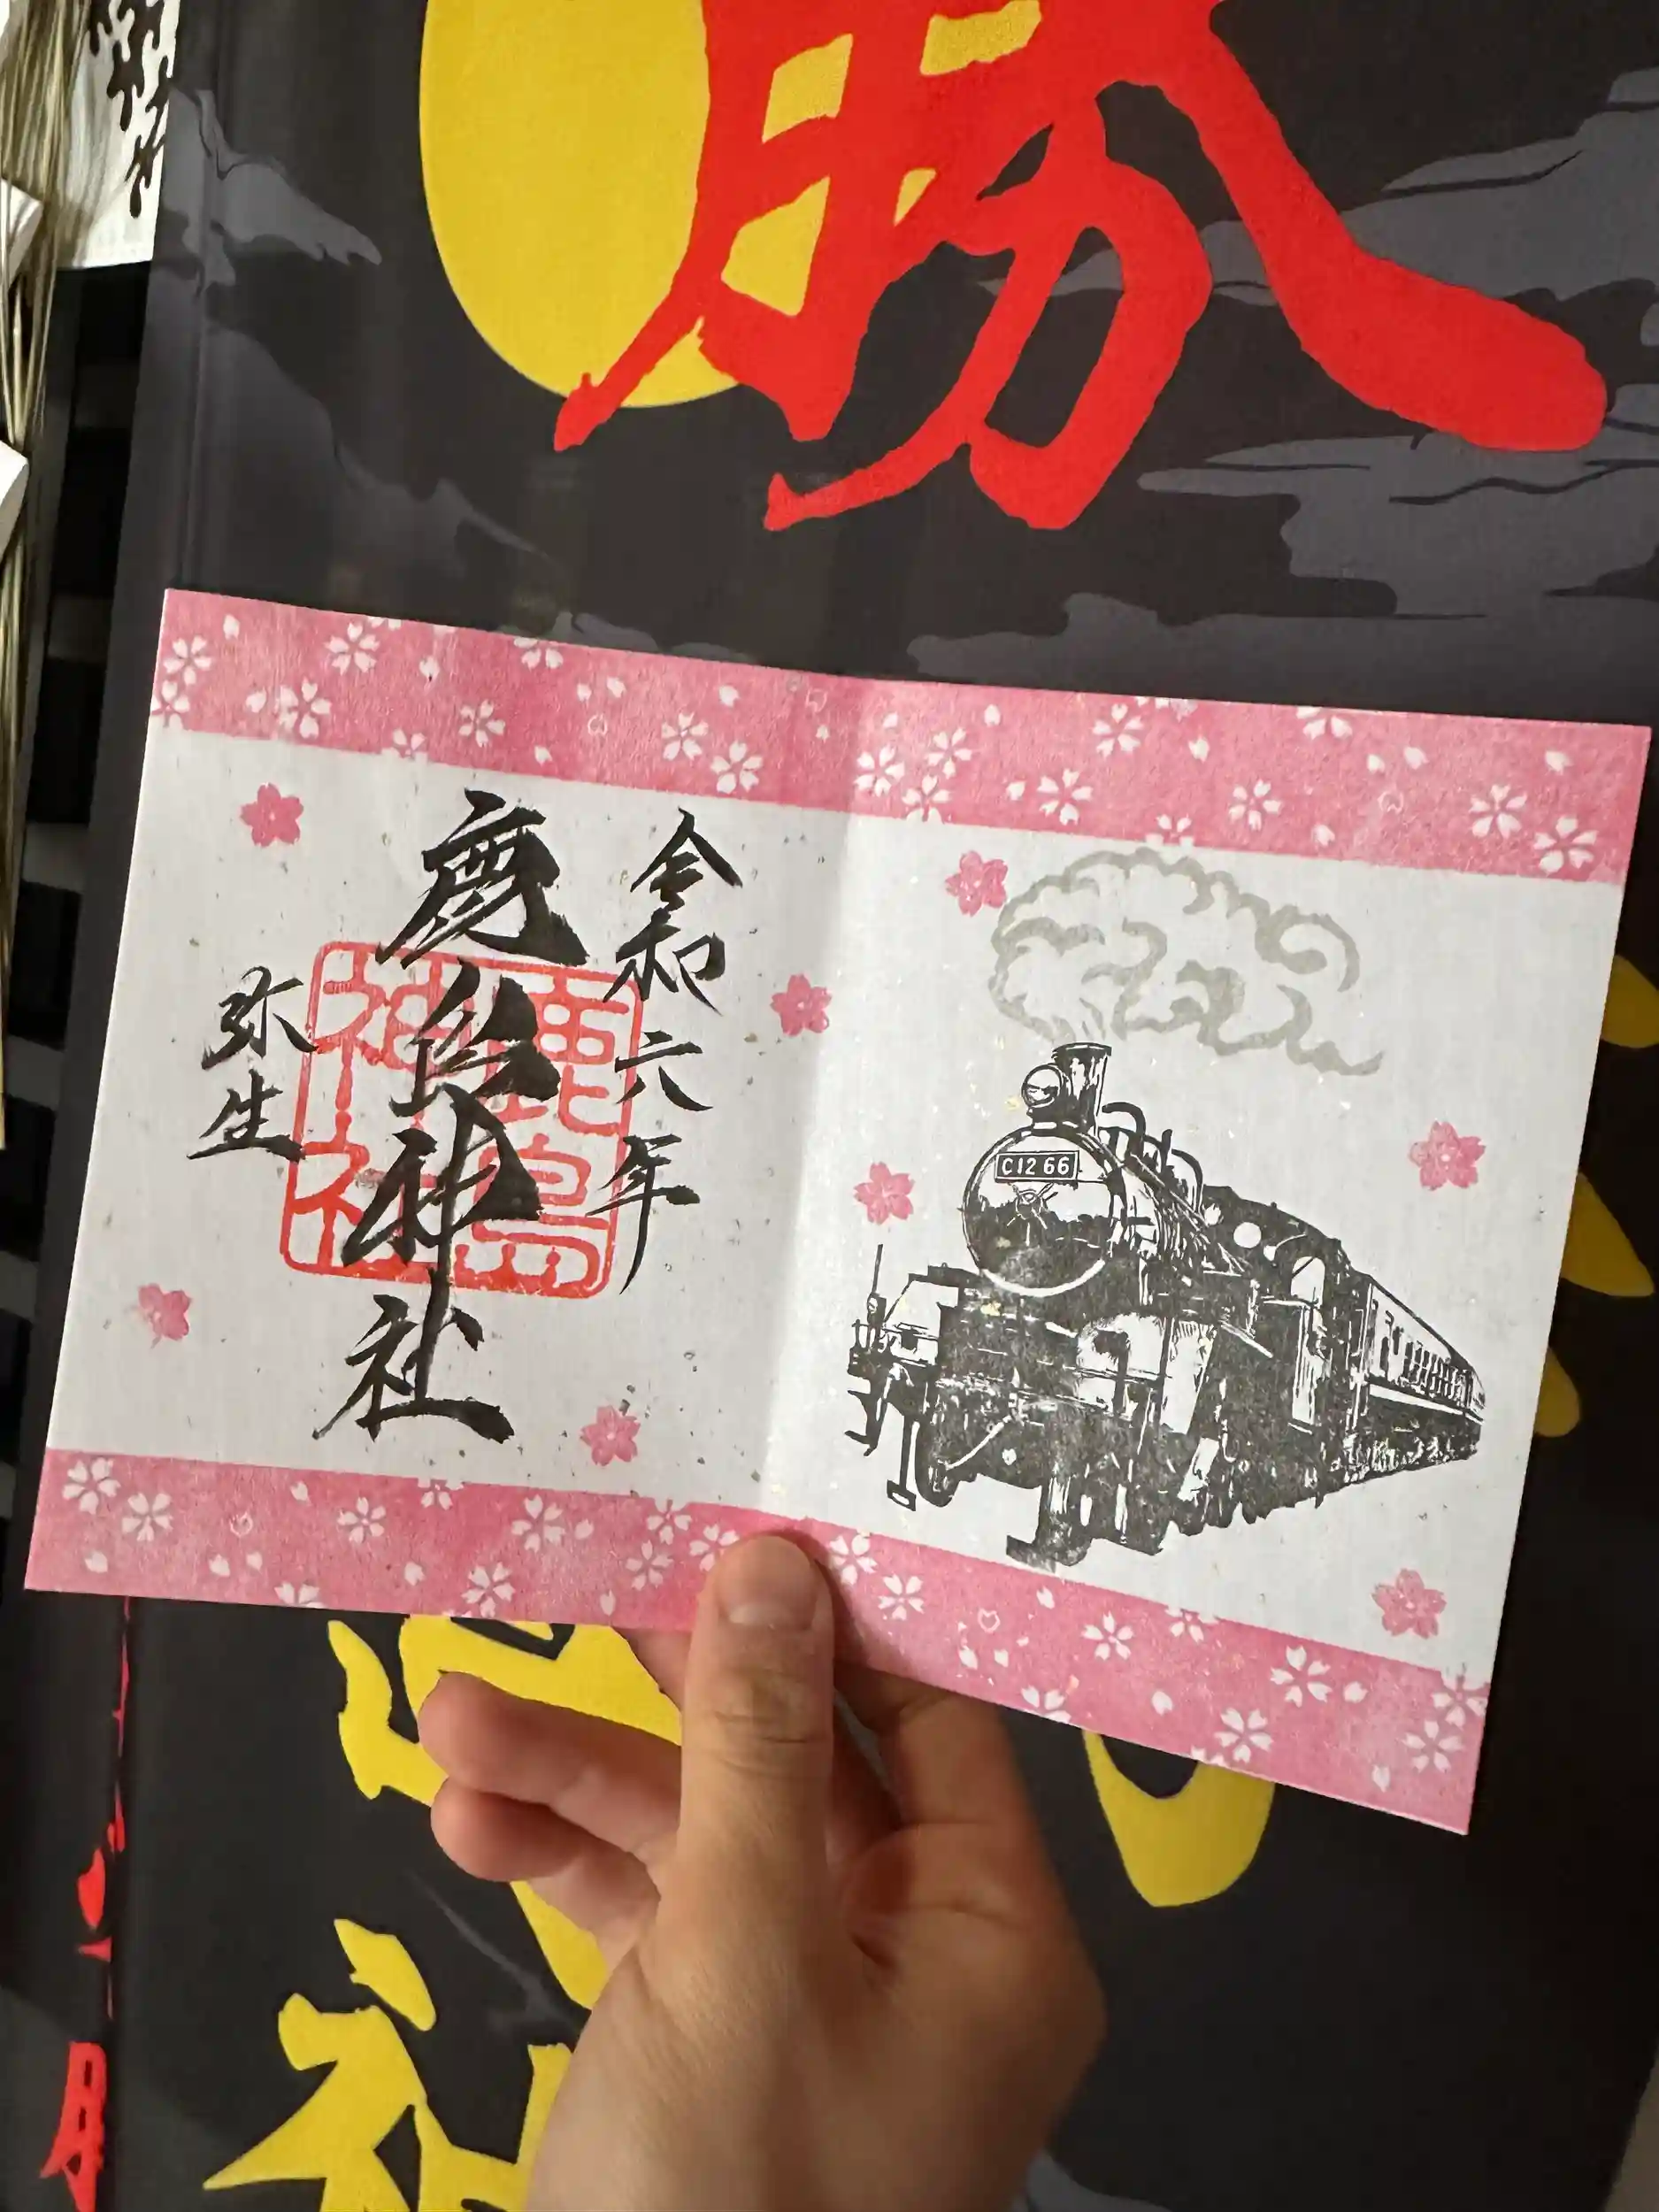 勝
令和六年
鹿島神社
弥生
鹿島
神社
C12 66
月